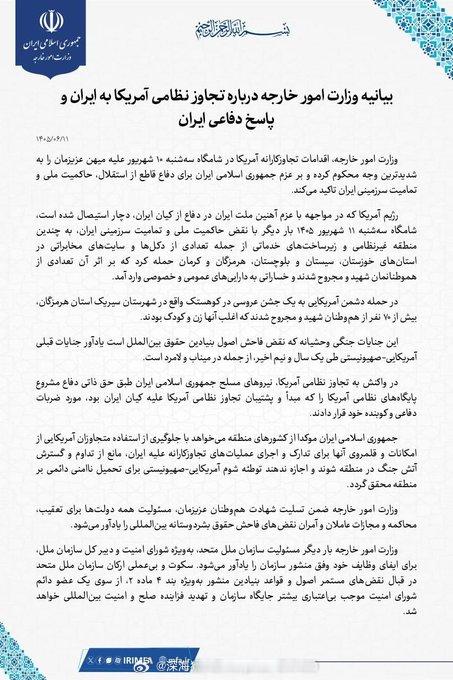 بسم الله الرحمن الرحیم
جمهوری اسلامی ایران
وزارت امور خارجه
بیانیه وزارت امور خارجه درباره تجاوز نظامی آمریکا به ایران و
پاسخ دفاعی ایران
۱۴۰۵/۰۶/۱۱
وزارت امور خارجه، اقدامات تجاوزکارانه آمریکا در شامگاه سه‌شنبه ۱۰ شهریور علیه میهن عزیزمان را به
شدیدترین وجه محکوم کرده و بر عزم جمهوری اسلامی ایران برای دفاع قاطع از استقلال، حاکمیت ملی و
تمامیت سرزمینی ایران تاکید می‌کند.
رژیم آمریکا که در مواجهه با عزم آهنین ملت ایران در دفاع از کیان ایران، دچار استیصال شده است،
شامگاه سه‌شنبه ۱۱ شهریور ۱۴۰۵ بار دیگر با نقض حاکمیت ملی و تمامیت سرزمینی ایران، به چندین
منطقه غیرنظامی و زیرساخت‌های خدماتی از جمله تعدادی از دکل‌ها و سایت‌های مخابراتی در
استان‌های خوزستان، سیستان و بلوچستان، هرمزگان و کرمان حمله کرد که بر اثر آن تعدادی از
هموطنانمان شهید و مجروح شدند و خساراتی به دارایی‌های عمومی و خصوصی وارد آمد.
در حمله دشمن آمریکایی به یک جشن عروسی در کوهستک واقع در شهرستان سیریک استان هرمزگان،
بیش از ۷۰ نفر از هم‌وطنان شهید و مجروح شدند که اغلب آنها زن و کودک بودند.
این جنایات جنگی وحشیانه که نقض فاحش اصول بنیادین حقوق بین‌الملل است یادآور جنایات قبلی
آمریکایی-صهیونیستی طی یک سال و نیم اخیر، از جمله در میناب و لامرد است.
در واکنش به تجاوز نظامی آمریکا، نیروهای مسلح جمهوری اسلامی ایران طبق حق ذاتی دفاع مشروع
پایگاه‌های نظامی آمریکا را که مبدأ و پشتیبان تجاوز نظامی آمریکا علیه کیان ایران بود، مورد ضربات
دفاعی و کوبنده خود قرار دادند.
جمهوری اسلامی ایران موکدا از کشورهای منطقه می‌خواهد با جلوگیری از استفاده متجاوزان آمریکایی از
امکانات و قلمروی آنها برای تدارک و اجرای عملیات‌های تجاوزکارانه علیه ایران، مانع از تداوم و گسترش
آتش جنگ در منطقه شوند و اجازه ندهند توطئه شوم آمریکایی-صهیونیستی برای تحمیل ناامنی دائمی بر
منطقه محقق گردد.
وزارت امور خارجه ضمن تسلیت شهادت هم‌وطنان عزیزمان، مسئولیت همه دولت‌ها برای تعقیب،
محاکمه و مجازات عاملان و آمران نقض‌های فاحش حقوق بشردوستانه بین‌المللی را یادآور می‌شود.
وزارت امور خارجه بار دیگر مسئولیت سازمان ملل متحد، به‌ویژه شورای امنیت و دبیر کل سازمان ملل،
برای ایفای وظایف خود وفق منشور سازمان را یادآور می‌شود. سکوت و بی‌عملی ارکان سازمان ملل متحد
در قبال نقض‌های مستمر اصول و قواعد بنیادین منشور به‌ویژه بند ۴ ماده ۲، از سوی یک عضو دائم
شورای امنیت موجب بی‌اعتباری بیشتر جایگاه سازمان و تهدید فزاینده صلح و امنیت بین‌المللی خواهد
شد.
IRIMFA
mfa.ir
@深海